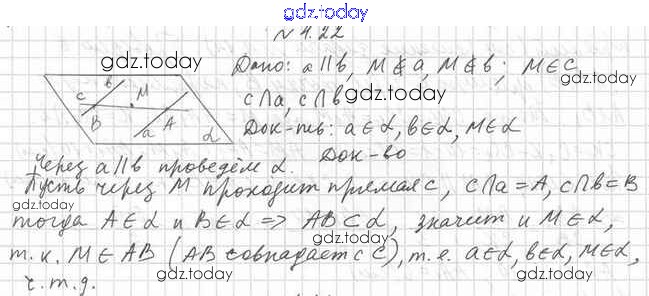 gdz.today
№ 4.22
gdz.today
Дано: a∥b, M∉a, M∉b; M∈C
gdz.today
c∩a, c∩b
Док-ть: a∈α, b∈α, M∈α
Док-во
b
c
M
B
a
A
α
Через a∥b проведём α.
Пусть через M проходит прямая c, c∩a=A, c∩b=B
gdz.today
gdz.today
тогда A∈α и B∈α ⇒ AB⊂α, значит и M∈α,
т.к. M∈AB (AB совпадает с c), т.е. a∈α, b∈α, M∈α,
gdz.today
gdz.today
ч.т.д.
gdz.today